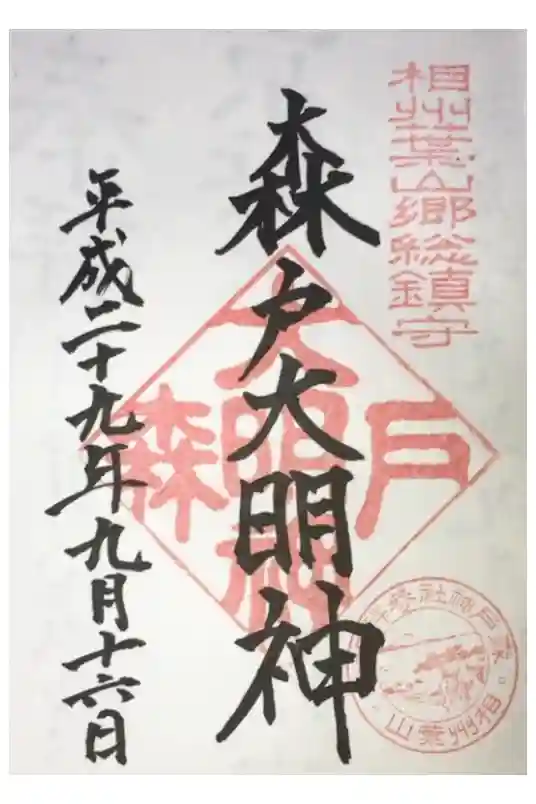 相州葉山郷総鎮守
森戸大明神
戸森
大明神
平成二十九年九月十六日
森戸神社
相州葉山